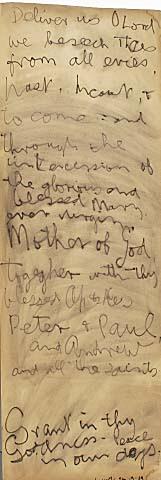 Deliver us O Lord
we beseech Thee
from all evils,
past, &
to come: and
through the
intercession of
the glorious and
blessed Mary
ever virgin,
Mother of God
together with thy
blessed Apostles
Peter & Paul,
and Andrew
and all the saints
Grant in thy
Goodness - peace
in our days.